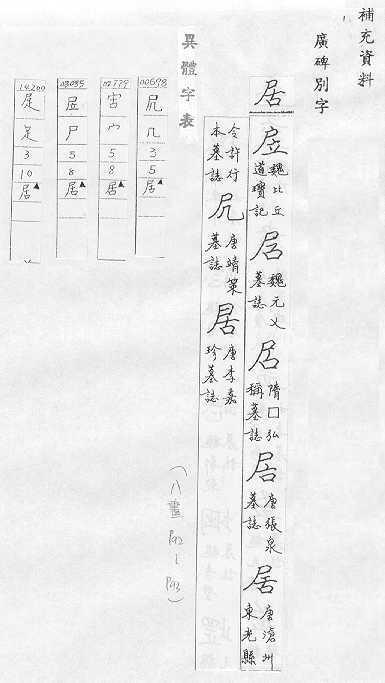 補充資料
廣碑別字
居
魏比丘道寶記
魏元乂墓誌
隋囗弘稱墓誌
居 唐張泉墓誌
居 唐滄州東光縣
令許行本墓誌
凥 唐靖策墓誌
唐李嘉珍墓誌
(八畫 P92~P93)
異體字表
00698 凥 几 3 5 居▲
02779 5 8 居▲
03085 尸 5 8 居▲
14200 足 3 10 居▲